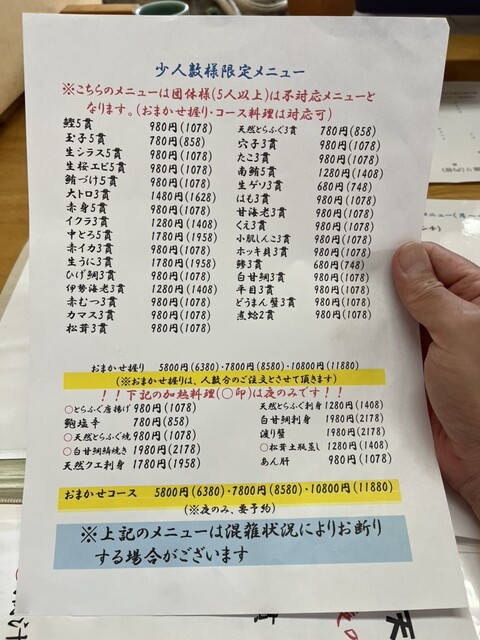 少人数様限定メニュー
※こちらのメニューは団体様(5人以上)は不対応メニューと
なります。(おまかせ握り・コース料理は対応可)
鰹5貫 980円(1078)
玉子5貫 780円(858)
生シラス5貫 980円(1078)
生桜エビ5貫 980円(1078)
鮪づけ5貫 980円(1078)
大トロ3貫 1480円(1628)
赤身5貫 980円(1078)
イクラ3貫 1280円(1408)
中とろ5貫 1780円(1958)
赤イカ3貫 980円(1078)
生うに3貫 1780円(1958)
ひげ鯛3貫 980円(1078)
伊勢海老3貫 1280円(1408)
赤むつ3貫 980円(1078)
カマス3貫 980円(1078)
松茸3貫 980円(1078)
天然とらふぐ3貫 780円(858)
穴子3貫 980円(1078)
たこ3貫 980円(1078)
南鮪5貫 1280円(1408)
生ゲソ3貫 680円(748)
はも3貫 980円(1078)
甘海老3貫 980円(1078)
くえ3貫 980円(1078)
小肌しんこ3貫 980円(1078)
ホッキ貝3貫 980円(1078)
鯵3貫 680円(748)
白甘鯛3貫 980円(1078)
平目3貫 980円(1078)
どうまん蟹3貫 980円(1078)
煮蛤2貫 980円(1078)
おまかせ握り 5800円(6380)・7800円(8580)・10800円(11880)
(※おまかせ握りは、人数分のご注文とさせて頂きます)
!!下記の加熱料理(〇印)は夜のみです!!
〇とらふぐ唐揚げ 980円(1078)
鮑塩辛 780円(858)
〇天然とらふぐ焼 980円(1078)
〇白甘鯛鱗焼き 1980円(2178)
天然クエ刺身 1780円(1958)
天然とらふぐ刺身 1280円(1408)
白甘鯛刺身 1980円(2178)
渡り蟹 1980円(2178)
〇松茸土瓶蒸し 1280円(1408)
あん肝 980円(1078)
おまかせコース 5800円(6380)・7800円(8580)・10800円(11880)
(※夜のみ、要予約)
※上記のメニューは混雑状況によりお断り
する場合がございます